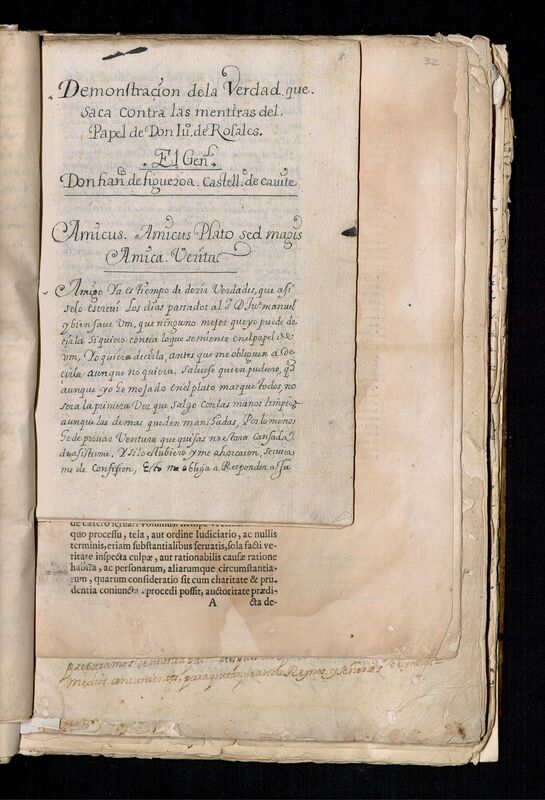 32
Demonstraçion dela Verdad. que.
saca contra las mentiras del.
Papel de Don Iuº. de Rosales.
El Genˡ.
Don franº. de figueroa. Castellº. de cavite
Amicus. Amicus Plato sed magis
Amica. Veritas
Amigo Ya es tiempo de dezir Verdades, que asi
selo escreui los dias passados al P. D. Juº manuel
y bien save Vm, que ninguno mejor que yo puede de
cirla si quiero contra lo que se miente en el papel de
Vm, Yo quiero decirla, antes que me obliguen a De
cirla aunque no quiera, Salvese quien pudiere, q̃
aunque yo he mojado en el plato mas que todos, no
sera la primera Vez que salgo con las manos limpias
aunque las demas queden manchadas, Por lo menos
he de provar Ventura que quisas no estara Cansada
de asistirme. Y si lo estubiere y me ahorcaren, servira
me de Confesion, Esto me obliga a Responder a su
quo processu, tela, aut ordine Iudiciario, ac nullis
terminis, etiam substantialibus seruatis, sola facti ve-
ritate inspecta culpæ, aut rationabilis causæ ratione
habita, ac personarum, aliarumque circumstantia-
rum, quarum consideratio sit cum charitate & pru-
dentia coniuncta procedi possit, auctoritate prædi-
A cta de-
medios convenientes, para que en nuestros Reynos, y señorios